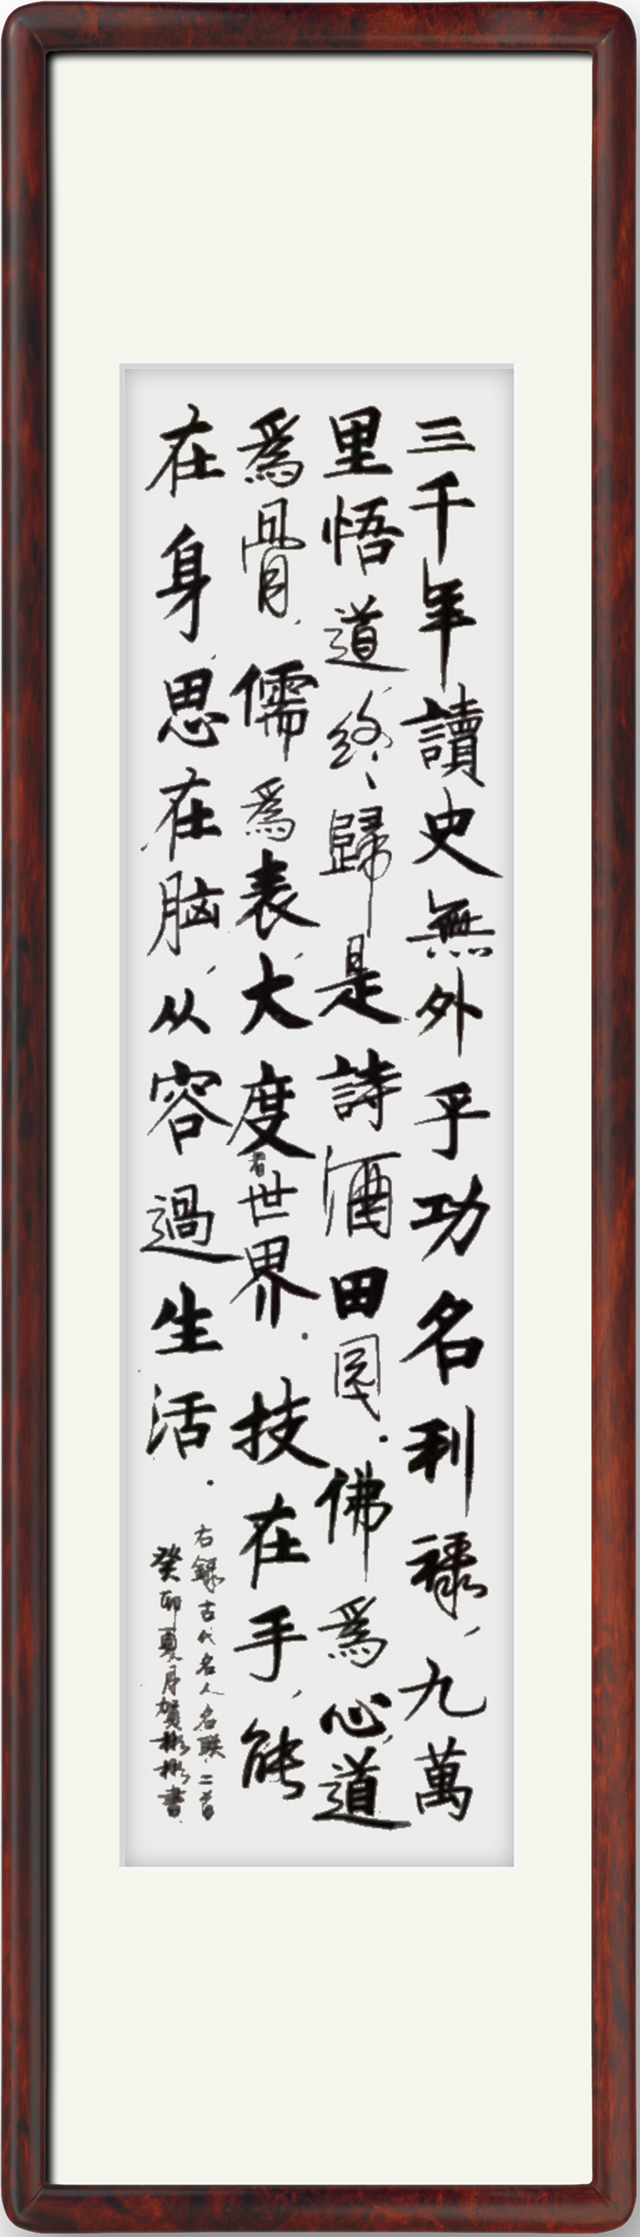 三千年讀史無外乎功名利祿，九萬
里悟道，終歸是詩酒田园．佛為心，道
為骨，儒為表，大度看世界．技在手，能
在身，思在脑，从容過生活．
右錄古代名人名联二首
癸卯夏月贺彬彬書